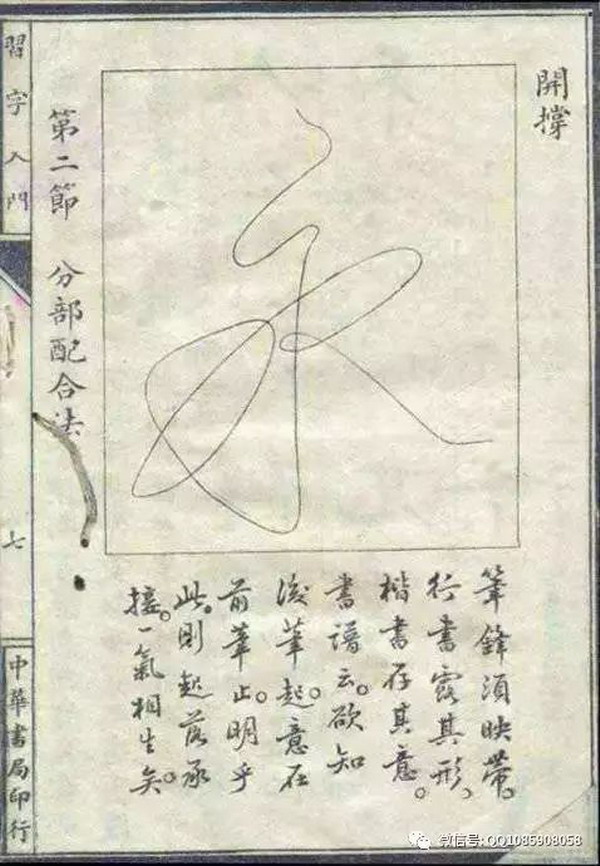 開撐
永
筆鋒須映帶。
行書露其形、
楷書存其意。
書譜云。欲知
後筆起。意在
前筆止。明乎
此。則起落承
接。一氣相生矣。
第二節 分部配合法
習字入門
七
中華書局印行
微信号: QQ1085908058